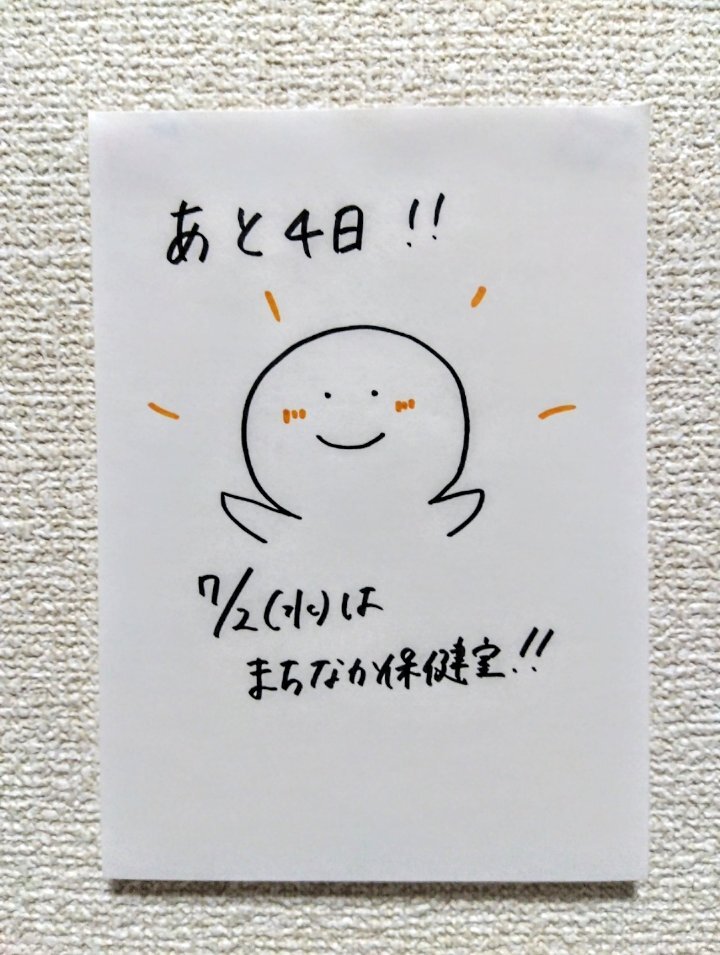 あと4日!!
7/2(水)は
まちなか保健室!!